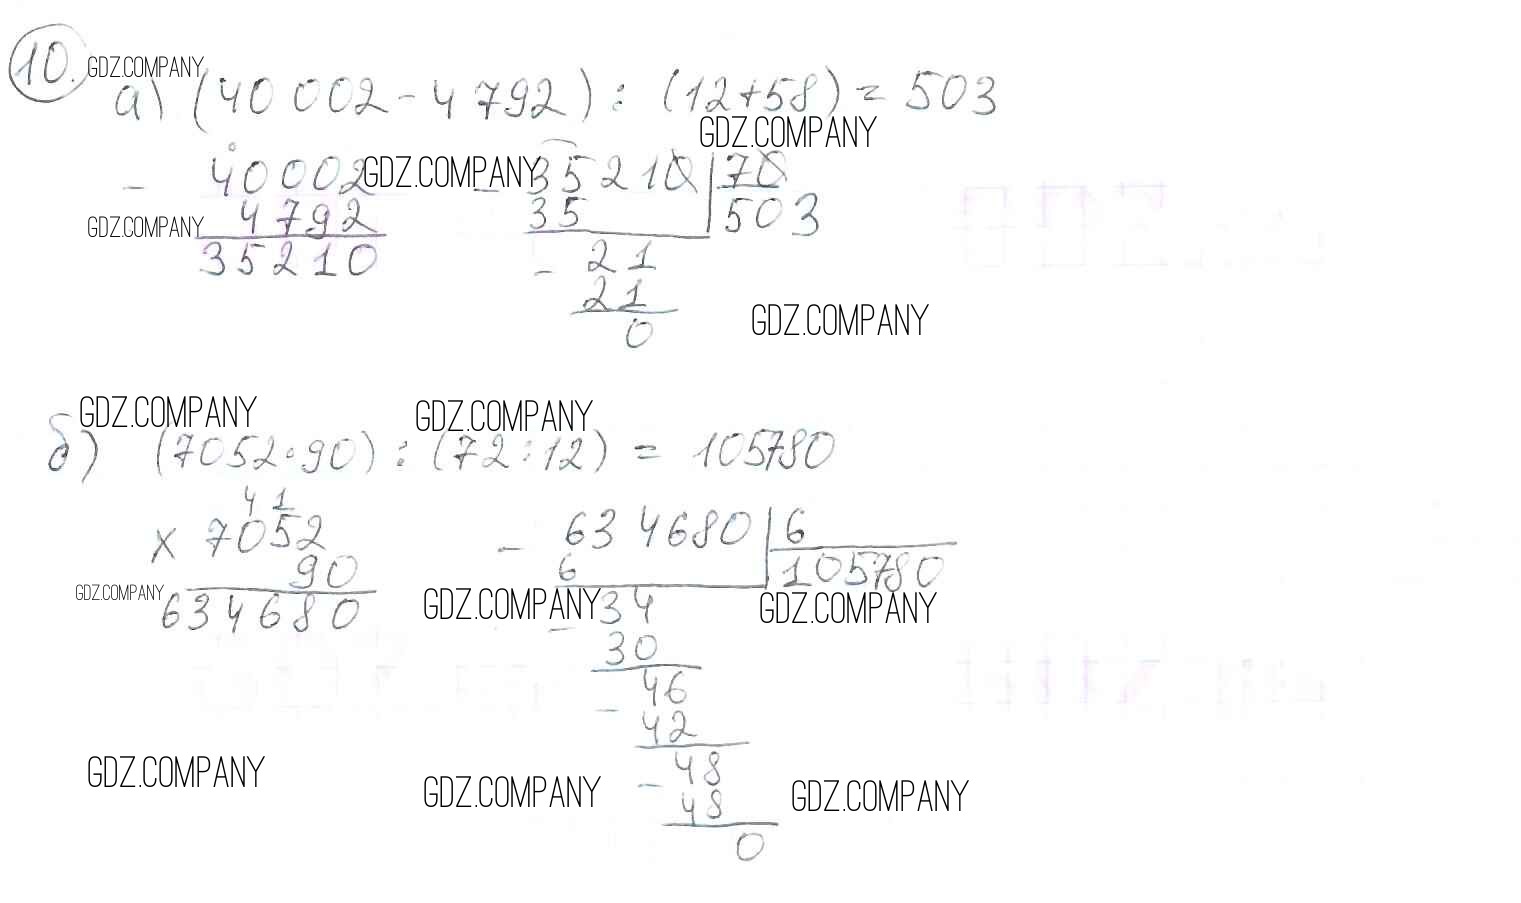 10. GDZ.COMPANY
а) (40 002 - 4 792) : (12+58) = 503
GDZ.COMPANY
- 40002 GDZ.COMPANY - 35210 | 70
GDZ.COMPANY 4792 35 503
35210 - 21
21
0
GDZ.COMPANY
GDZ.COMPANY GDZ.COMPANY
б) (7052·90) : (72:12) = 105780
4 1
x 7052 - 634680 | 6
90 6 105780
GDZ.COMPANY 634680 GDZ.COMPANY - 34 GDZ.COMPANY
30
- 46
42
GDZ.COMPANY GDZ.COMPANY - 48 GDZ.COMPANY
48
0